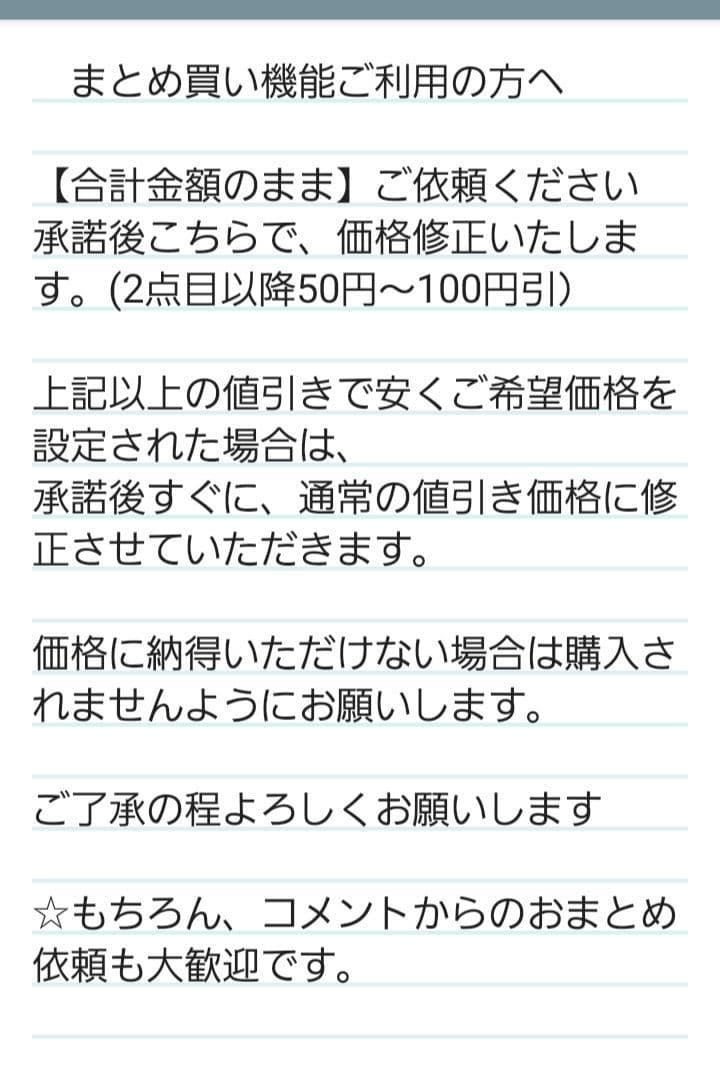 まとめ買い機能ご利用の方へ
【合計金額のまま】ご依頼ください
承諾後こちらで、価格修正いたしま
す。(2点目以降50円〜100円引)
上記以上の値引きで安くご希望価格を
設定された場合は、
承諾後すぐに、通常の値引き価格に修
正させていただきます。
価格に納得いただけない場合は購入さ
れませんようにお願いします。
ご了承の程よろしくお願いします
☆もちろん、コメントからのおまとめ
依頼も大歓迎です。